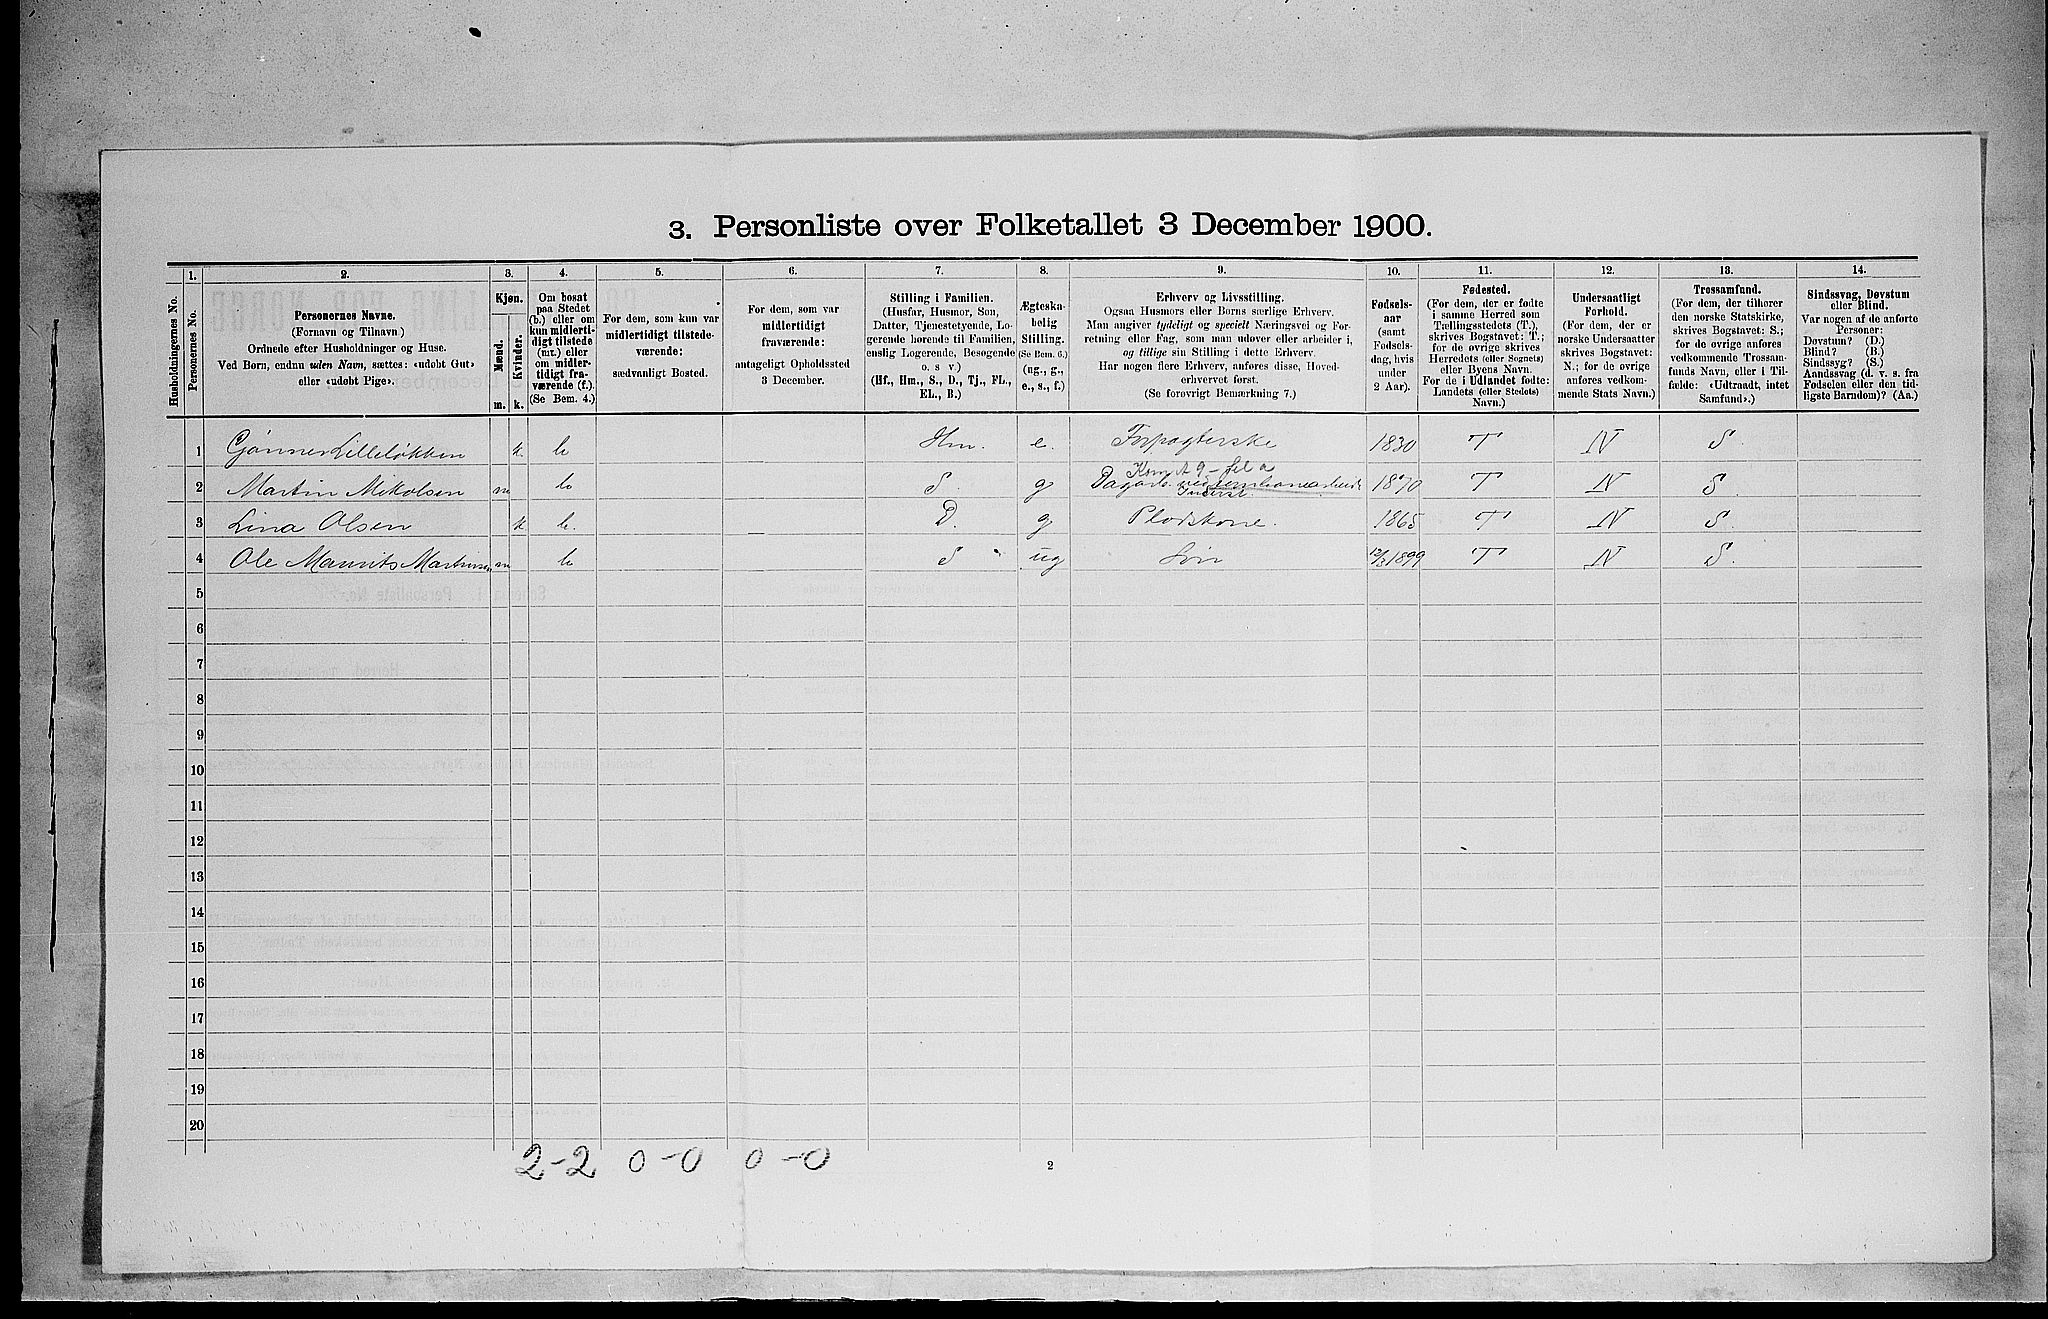 3. Personliste over Folketallet 3 December 1900.
1. 2. 3. 4. 5. 6. 7. 8. 9. 10. 11. 12. 13. 14.
Husholdningernes No.
Personernes No.
Personernes Navne.
(Fornavn og Tilnavn.)
Ordnede efter Husholdninger og Huse.
Ved Børn, endnu uden Navn, sættes: «udøbt Gut»
eller «udøbt Pige».
Kjøn.
Mænd.
Kvinder.
m. k.
Om bosat
paa Stedet
(b.) eller om
kun midlerti-
digt tilstede
(mt.) eller
om midler-
tidigt fra-
værende (f.).
(Se Bem. 4.)
For dem, som kun var
midlertidigt tilstede-
værende:
sædvanligt Bosted.
For dem, som var
midlertidigt
fraværende:
antageligt Opholdssted
3 December.
Stilling i Familien.
(Husfar, Husmor, Søn,
Datter, Tjenestetyende, Lo-
gerende hørende til Familien,
enslig Logerende, Besøgende
o. s. v.)
(Hf., Hm., S., D., Tj., FL.,
EL., B.)
Ægteska-
belig
Stilling.
(Se Bem. 6.)
(ug., g.,
e., s., f.)
Erhverv og Livsstilling.
Ogsaa Husmors eller Børns særlige Erhverv.
Man angiver tydeligt og specielt Næringsvei og For-
retning eller Fag, som man udøver eller arbeider i,
og tillige sin Stilling i dette Erhverv.
Har nogen flere Erhverv, anføres disse, Hoved-
erhvervet først.
(Se forøvrigt Bemærkning 7.)
Fødsels-
aar
(samt
Fødsels-
dag, hvis
under
2 Aar).
Fødested.
(For dem, der er fødte
i samme Herred som
Tællingsstedets (T.),
skrives Bogstavet: T.;
for de øvrige skrives
Herredets (eller Sognets)
eller Byens Navn.
For de i Udlandet fødte:
Landets (eller Stedets)
Navn.)
Undersaatligt
Forhold.
(For dem, der er
norske Undersaatter
skrives Bogstavet:
N.; for de øvrige
anføres vedkom-
mende Stats Navn.)
Trossamfund.
(For dem, der tilhører
den norske Statskirke,
skrives Bogstavet: S.;
for de øvrige anføres
vedkommende Trossam-
funds Navn, eller i Til-
fælde: «Udtraadt, intet
Samfund».)
Sindssvag, Døvstum
eller Blind.
Var nogen af de anførte
Personer:
Døvstum? (D.)
Blind? (B.)
Sindssyg? (S.)
Aandssvag (d. v. s. fra
Fødselen eller den tid-
ligste Barndom)? (Aa.)
1 Lilleløkken k. b. Hm. e. Forpagterske 1830 T N S
2 Martin Mikolsen m b S. g 1870 T N S.
3 Lina Olsen k b. D. g Plodskone. 1865 T N S.
4 Ole Maurits Martinsen m b S ug Søn 1899 T N S.
5
6
7
8
9
10
11
12
13
14
15
16
17
18
19
20
2-2 0-0 0-0
2